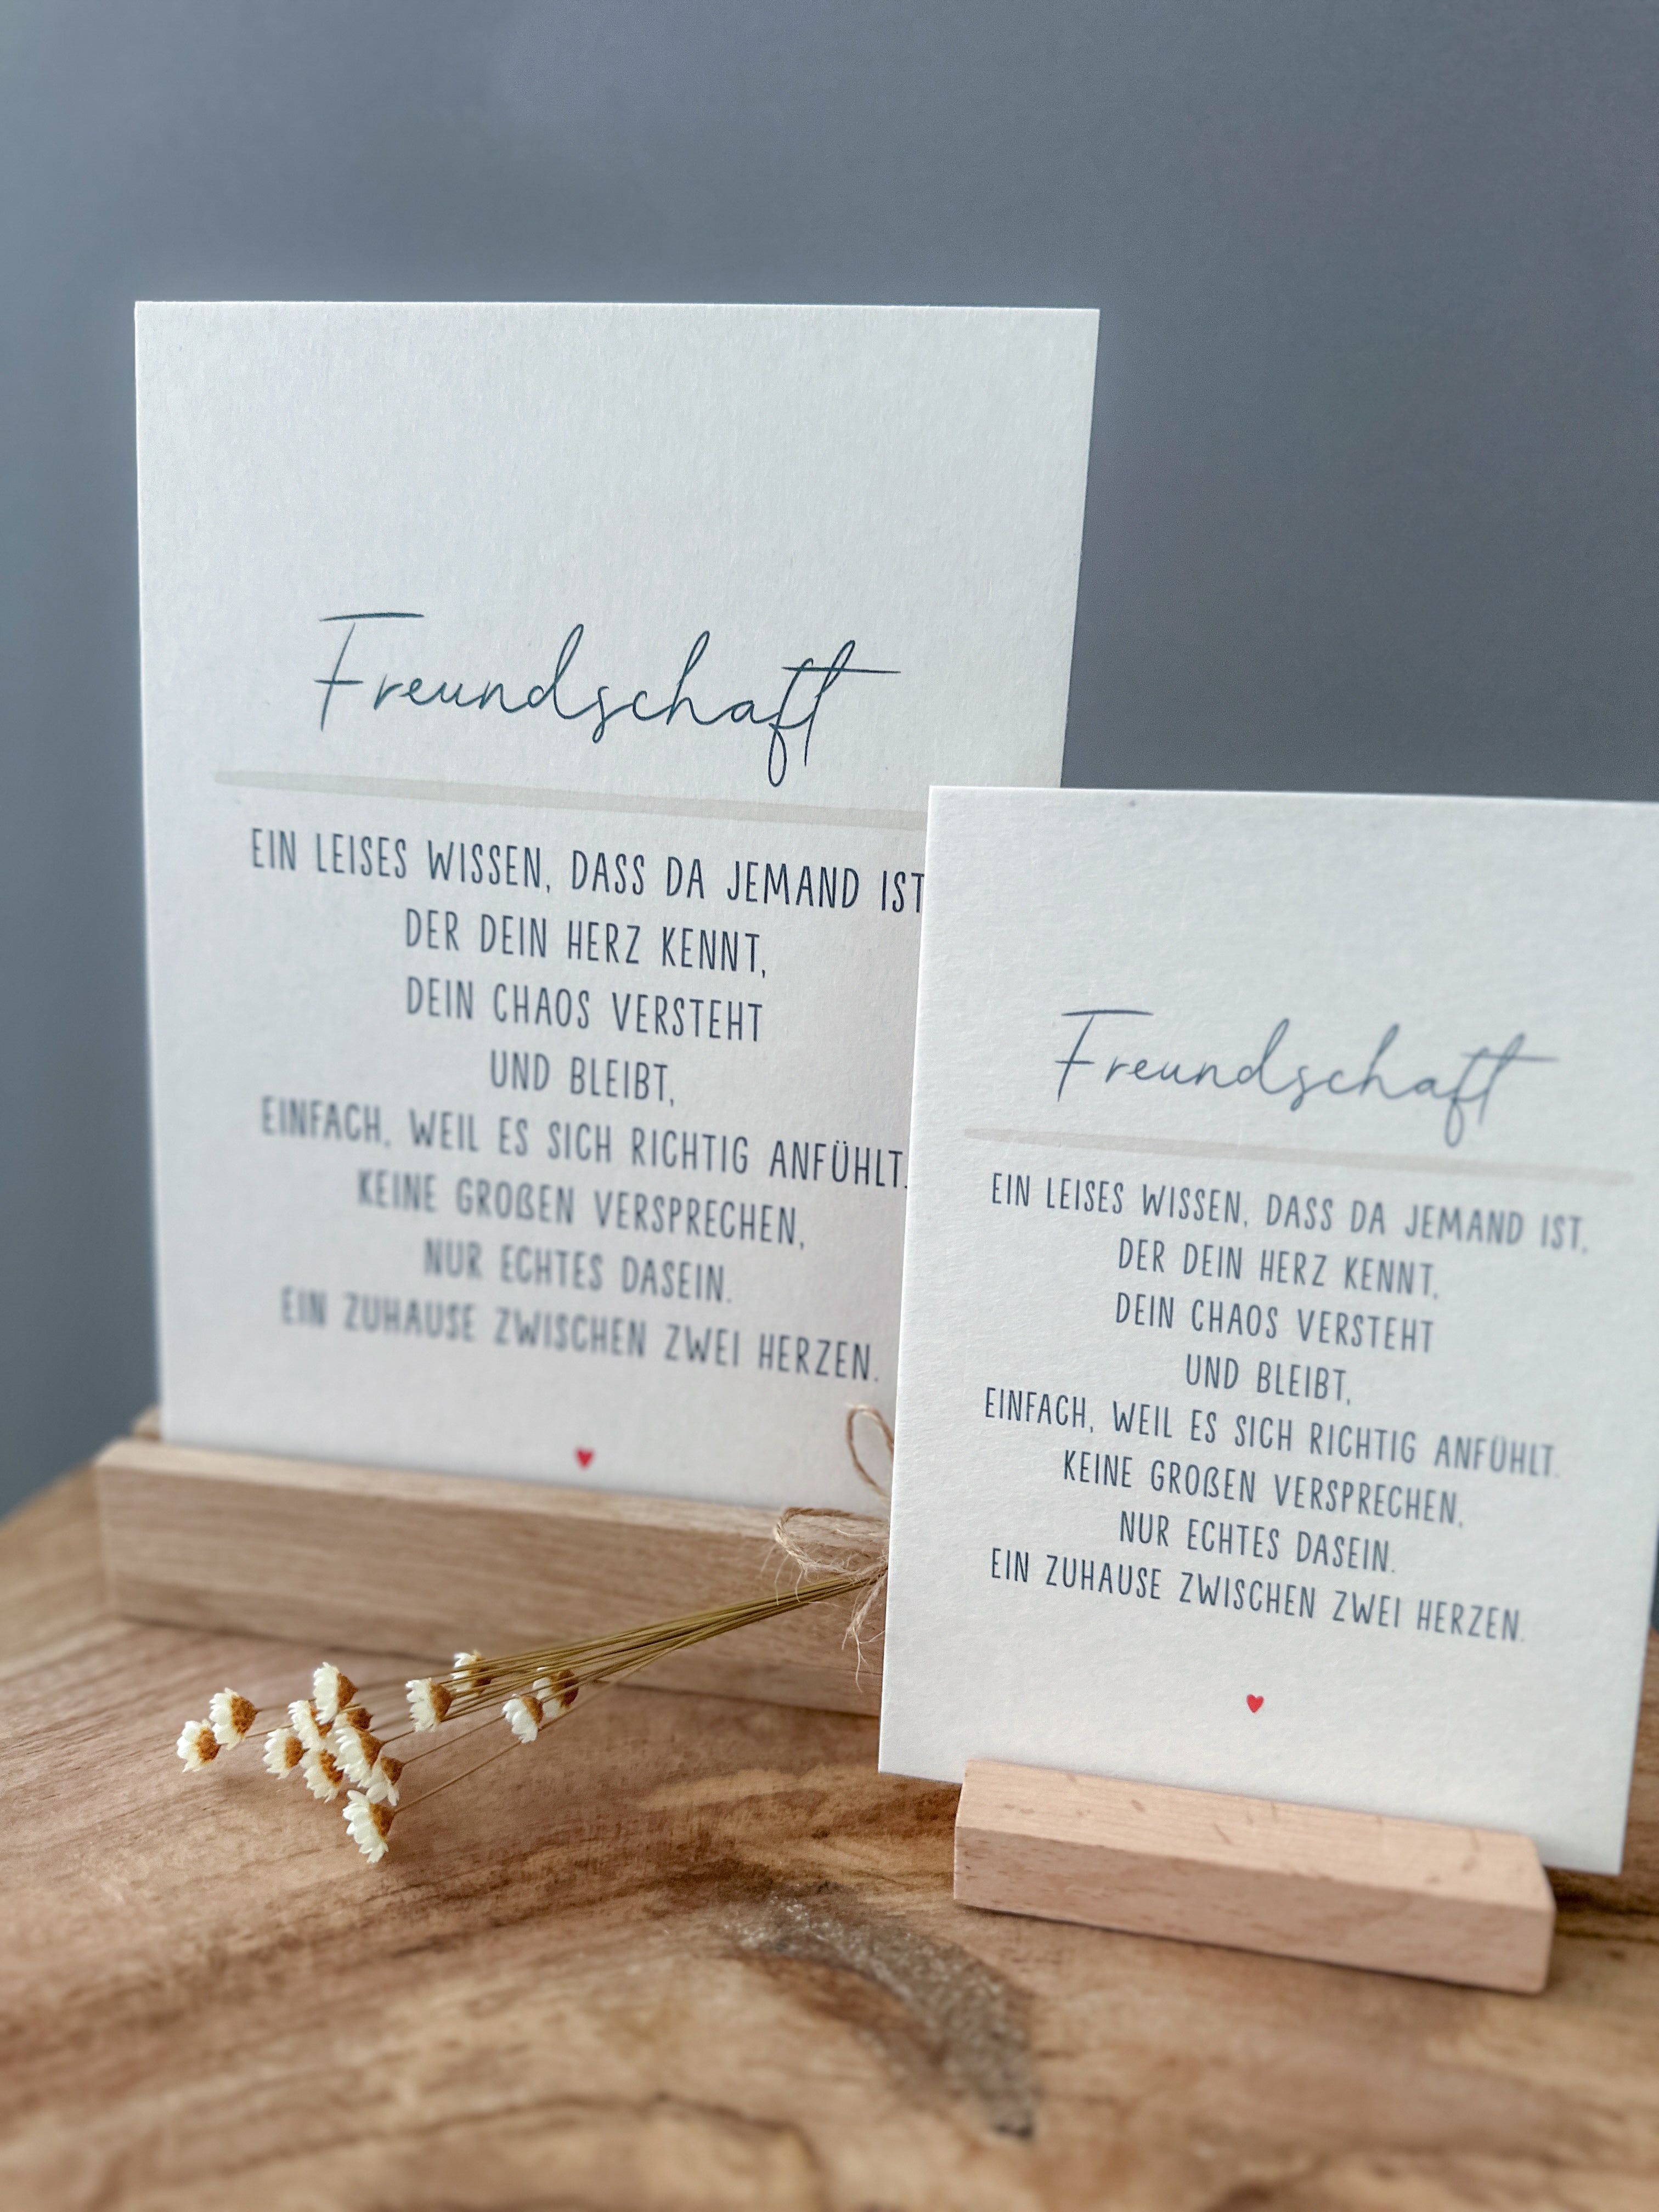 Freundschaft
EIN LEISES WISSEN, DASS DA JEMAND IST
DER DEIN HERZ KENNT,
DEIN CHAOS VERSTEHT
UND BLEIBT,
EINFACH, WEIL ES SICH RICHTIG ANFÜHLT.
KEINE GROßEN VERSPRECHEN,
NUR ECHTES DASEIN.
EIN ZUHAUSE ZWISCHEN ZWEI HERZEN.
Freundschaft
EIN LEISES WISSEN, DASS DA JEMAND IST,
DER DEIN HERZ KENNT,
DEIN CHAOS VERSTEHT
UND BLEIBT,
EINFACH, WEIL ES SICH RICHTIG ANFÜHLT.
KEINE GROßEN VERSPRECHEN,
NUR ECHTES DASEIN.
EIN ZUHAUSE ZWISCHEN ZWEI HERZEN.